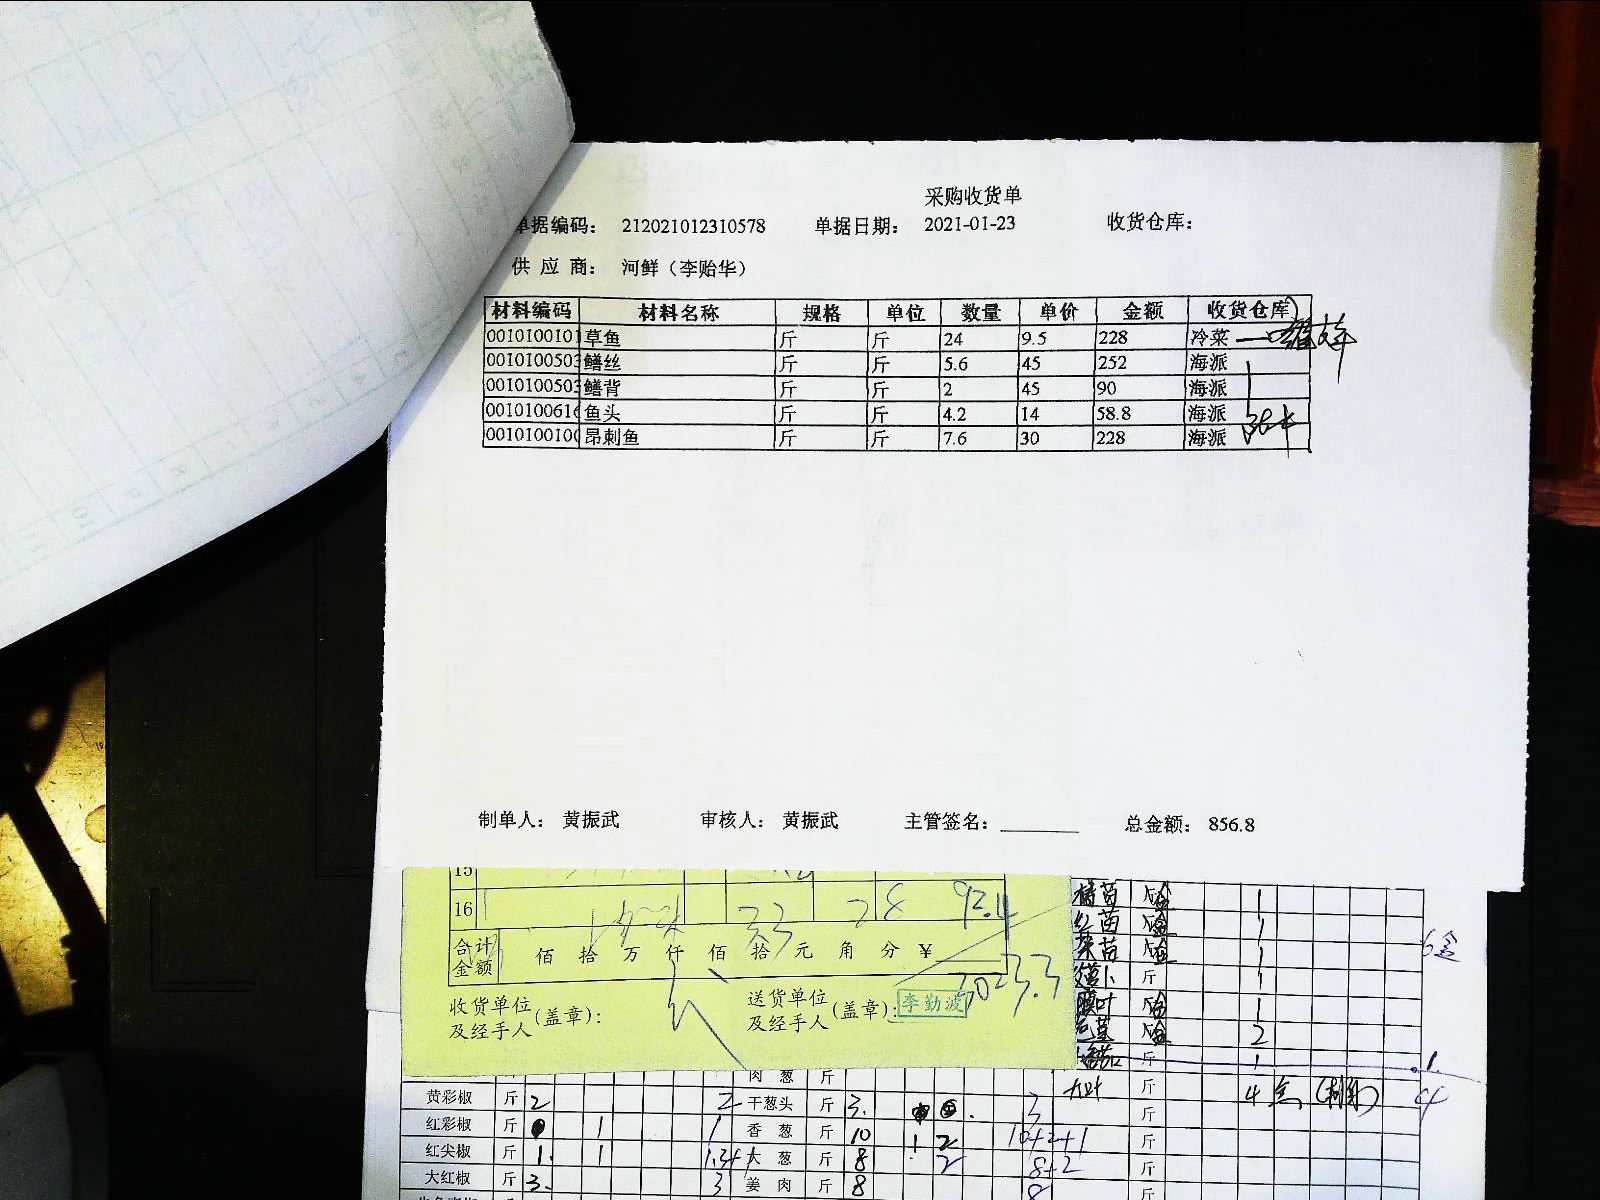 采购收货单
单据编码: 212021012310578 单据日期: 2021-01-23 收货仓库:
供 应 商: 河鲜（李贻华）
材料编码 材料名称 规格 单位 数量 单价 金额 收货仓库
0010100101 草鱼 斤 斤 24 9.5 228 冷菜
0010100503 鳝丝 斤 斤 5.6 45 252 海派
0010100503 鳝背 斤 斤 2 45 90 海派
0010100616 鱼头 斤 斤 4.2 14 58.8 海派
0010100100 昂刺鱼 斤 斤 7.6 30 228 海派
制单人: 黄振武 审核人: 黄振武 主管签名: 总金额: 856.8
15
16 33 28 92.4
合计金额 佰 拾 万 仟 佰 拾 元 角 分 ¥
3023.3
收货单位及经手人(盖章): 送货单位及经手人(盖章): 李勤波
苗 盒 1
红苗 盒 1
苗 盒 1
6盒
萝卜 斤 1
叶 盒 1
盒 2
斤 1 1
斤 4 4
肉 葱 斤
黄彩椒 斤 2 2 干葱头 斤 3. 3 斤
红彩椒 斤 1 1 香 葱 斤 10 1 2 10+2+1 斤
红尖椒 斤 1. 1 大 葱 斤 8 2 8+2 斤
大红椒 斤 3. 3 姜 肉 斤 8 8 斤